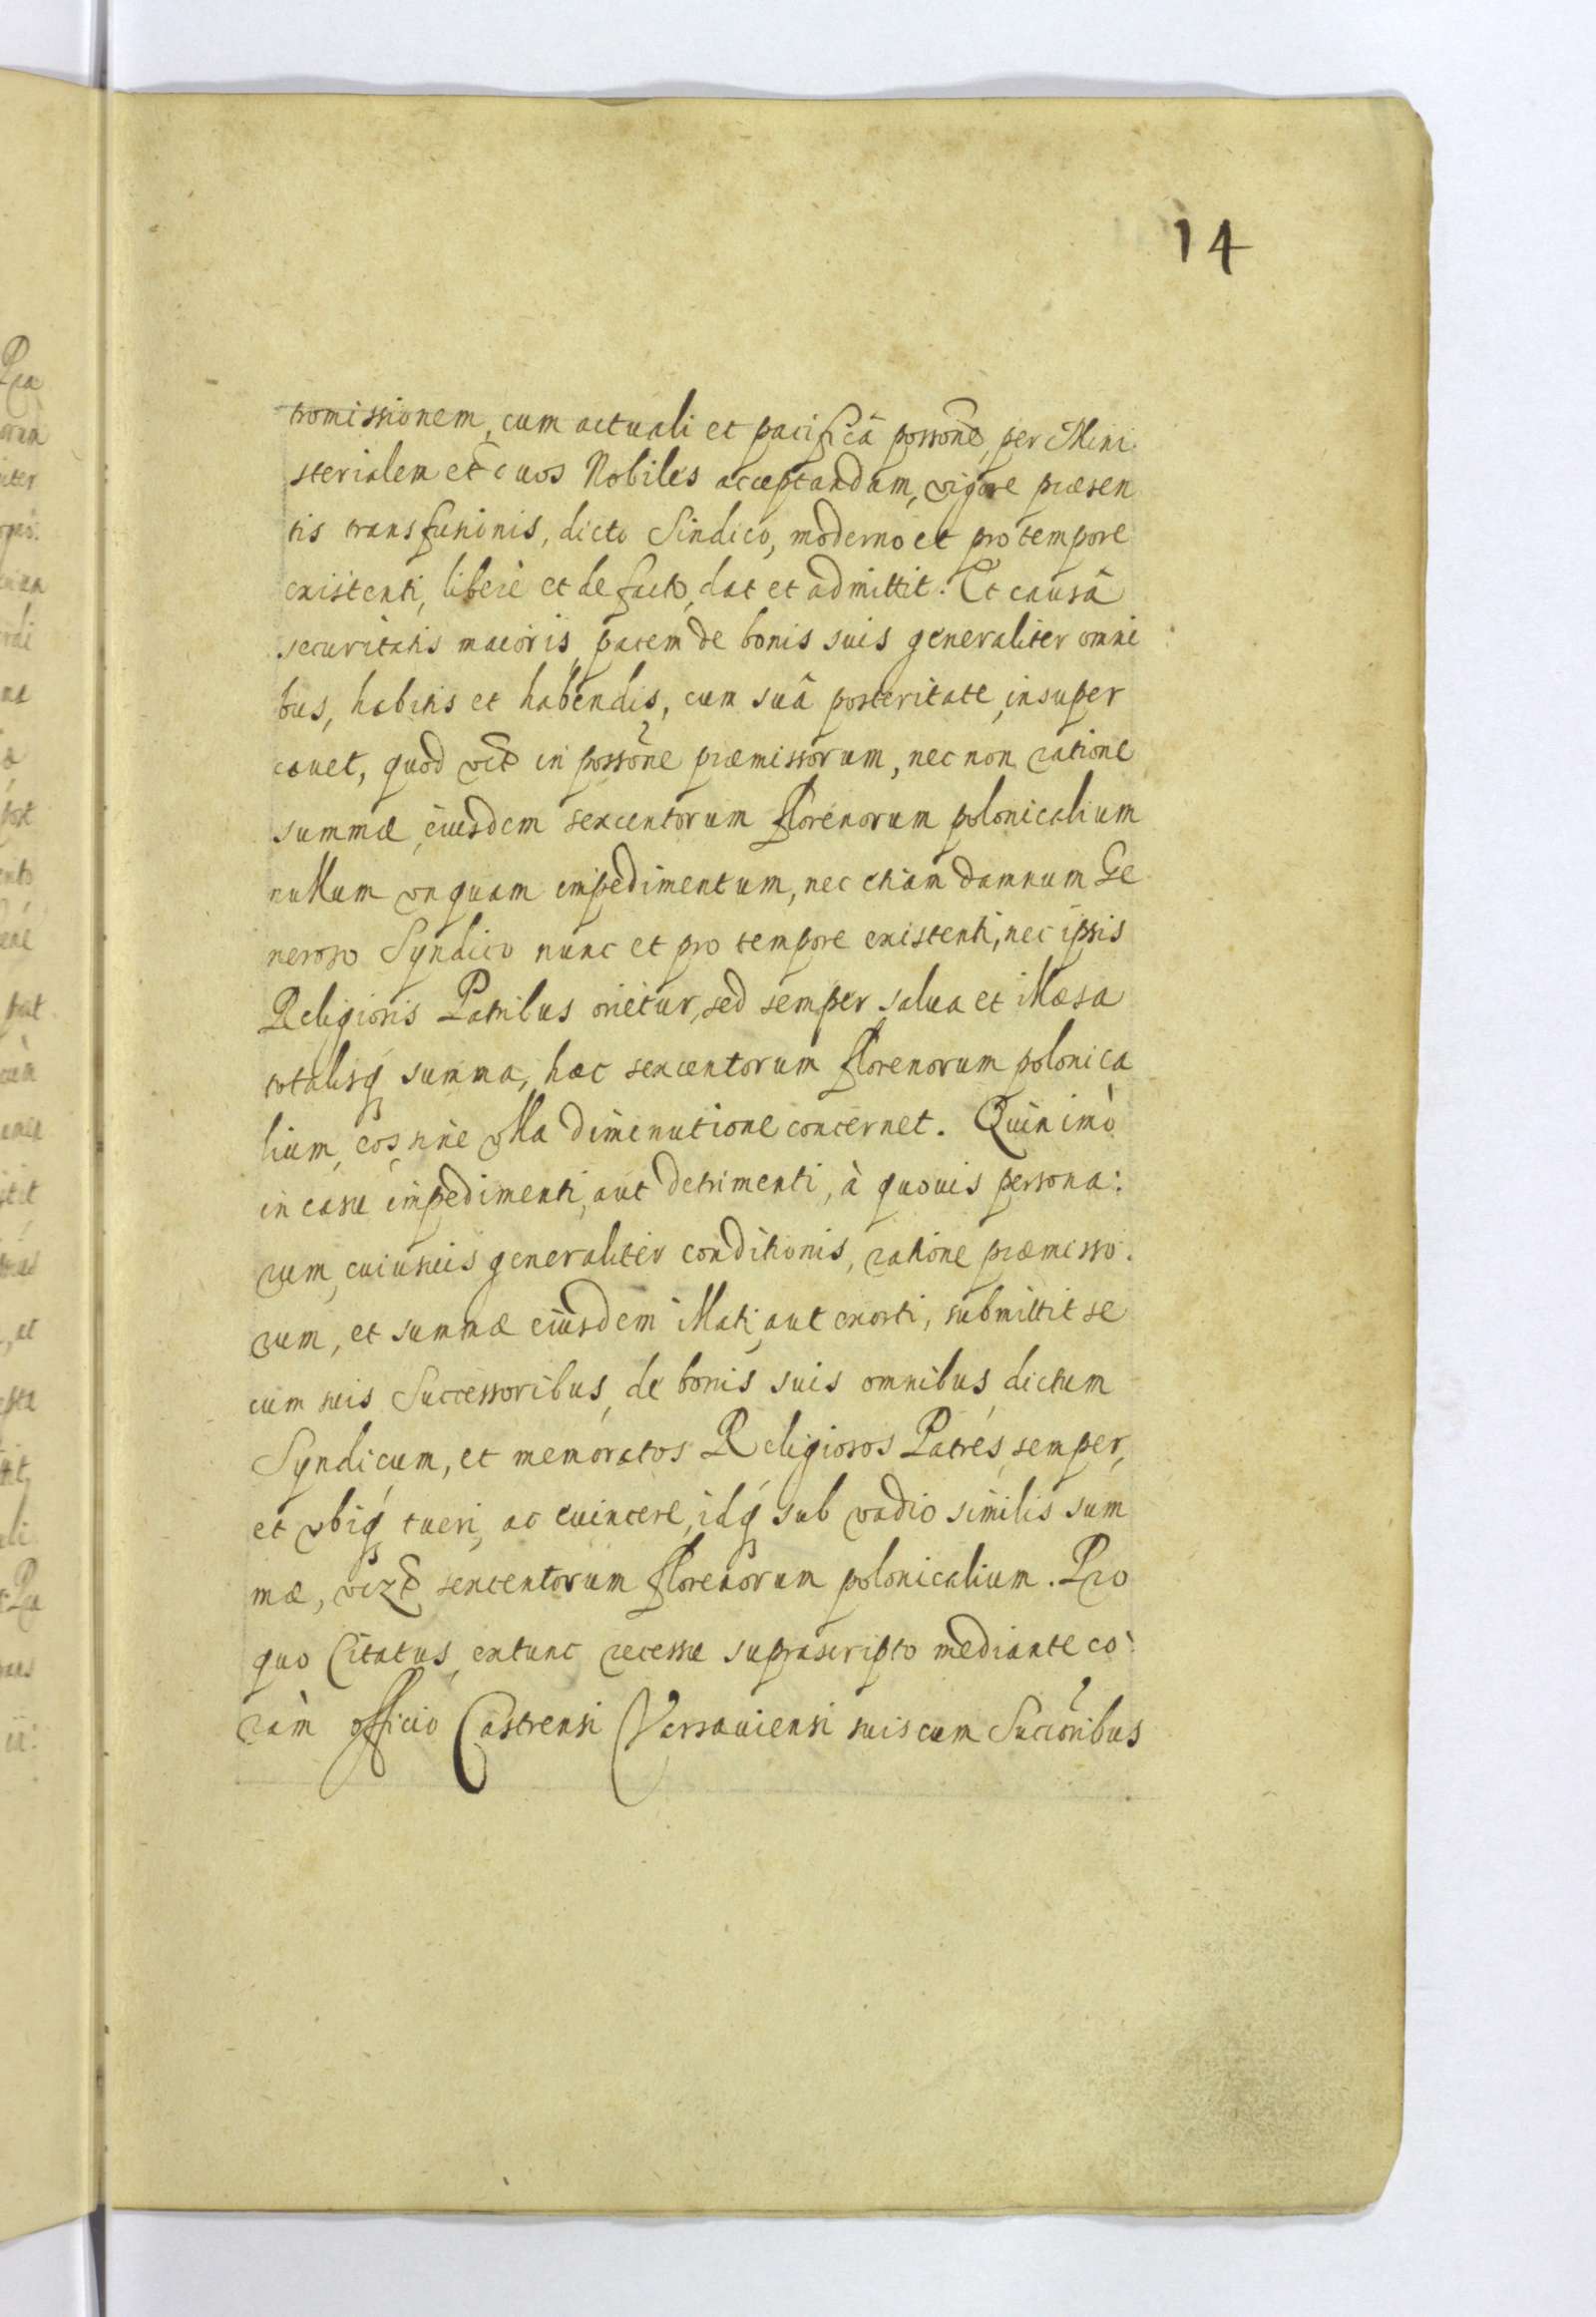 14
tromissionem, cum actuali et pacificâ possone, per Mini
sterialem et duos Nobiles acceptandam, vigore præsen
tis transfusionis, dicto Sindico, moderno et pro tempore
existenti, liberè et de facto, dat et admittit. Et causâ
securitatis maioris pacem de bonis suis generaliter omni
bus, habitis et habendis, cum suâ posteritate, insuper
cauet, quod in possone præmissorum, nec non ratione
summæ, eiusdem sexcentorum florenorum polonicalium
nullum vnquam impedimentum, nec etiam damnum Ge
neroso Syndico nunc et pro tempore existenti, nec ipsis
Religiosis Patribus orietur, sed semper salua et illæsa
totalisq́ summa, hæc sexcentorum florenorum polonica
lium, eos sine vlla diminutione concernet. Quinimò
in casu impedimenti, aut detrimenti, à quouis persona:
rum, cuiusuis generaliter conditionis, ratione præmisso:
rum, et summæ eiusdem illati, aut exorti, submittit se
cum suis Successoribus, de bonis suis omnibus, dictum
Syndicum, et memoratos Religiosos Patres, semper,
et vbiq́ tueri, ac euincere, idq́ sub vadio similis sum
mæ, vizt sexcentorum florenorum polonicalium. Pro
quo Citatus, extunc recessu suprascripto mediante co:
ràm officio Castrensi Varsauiensi suis cum Succoribus